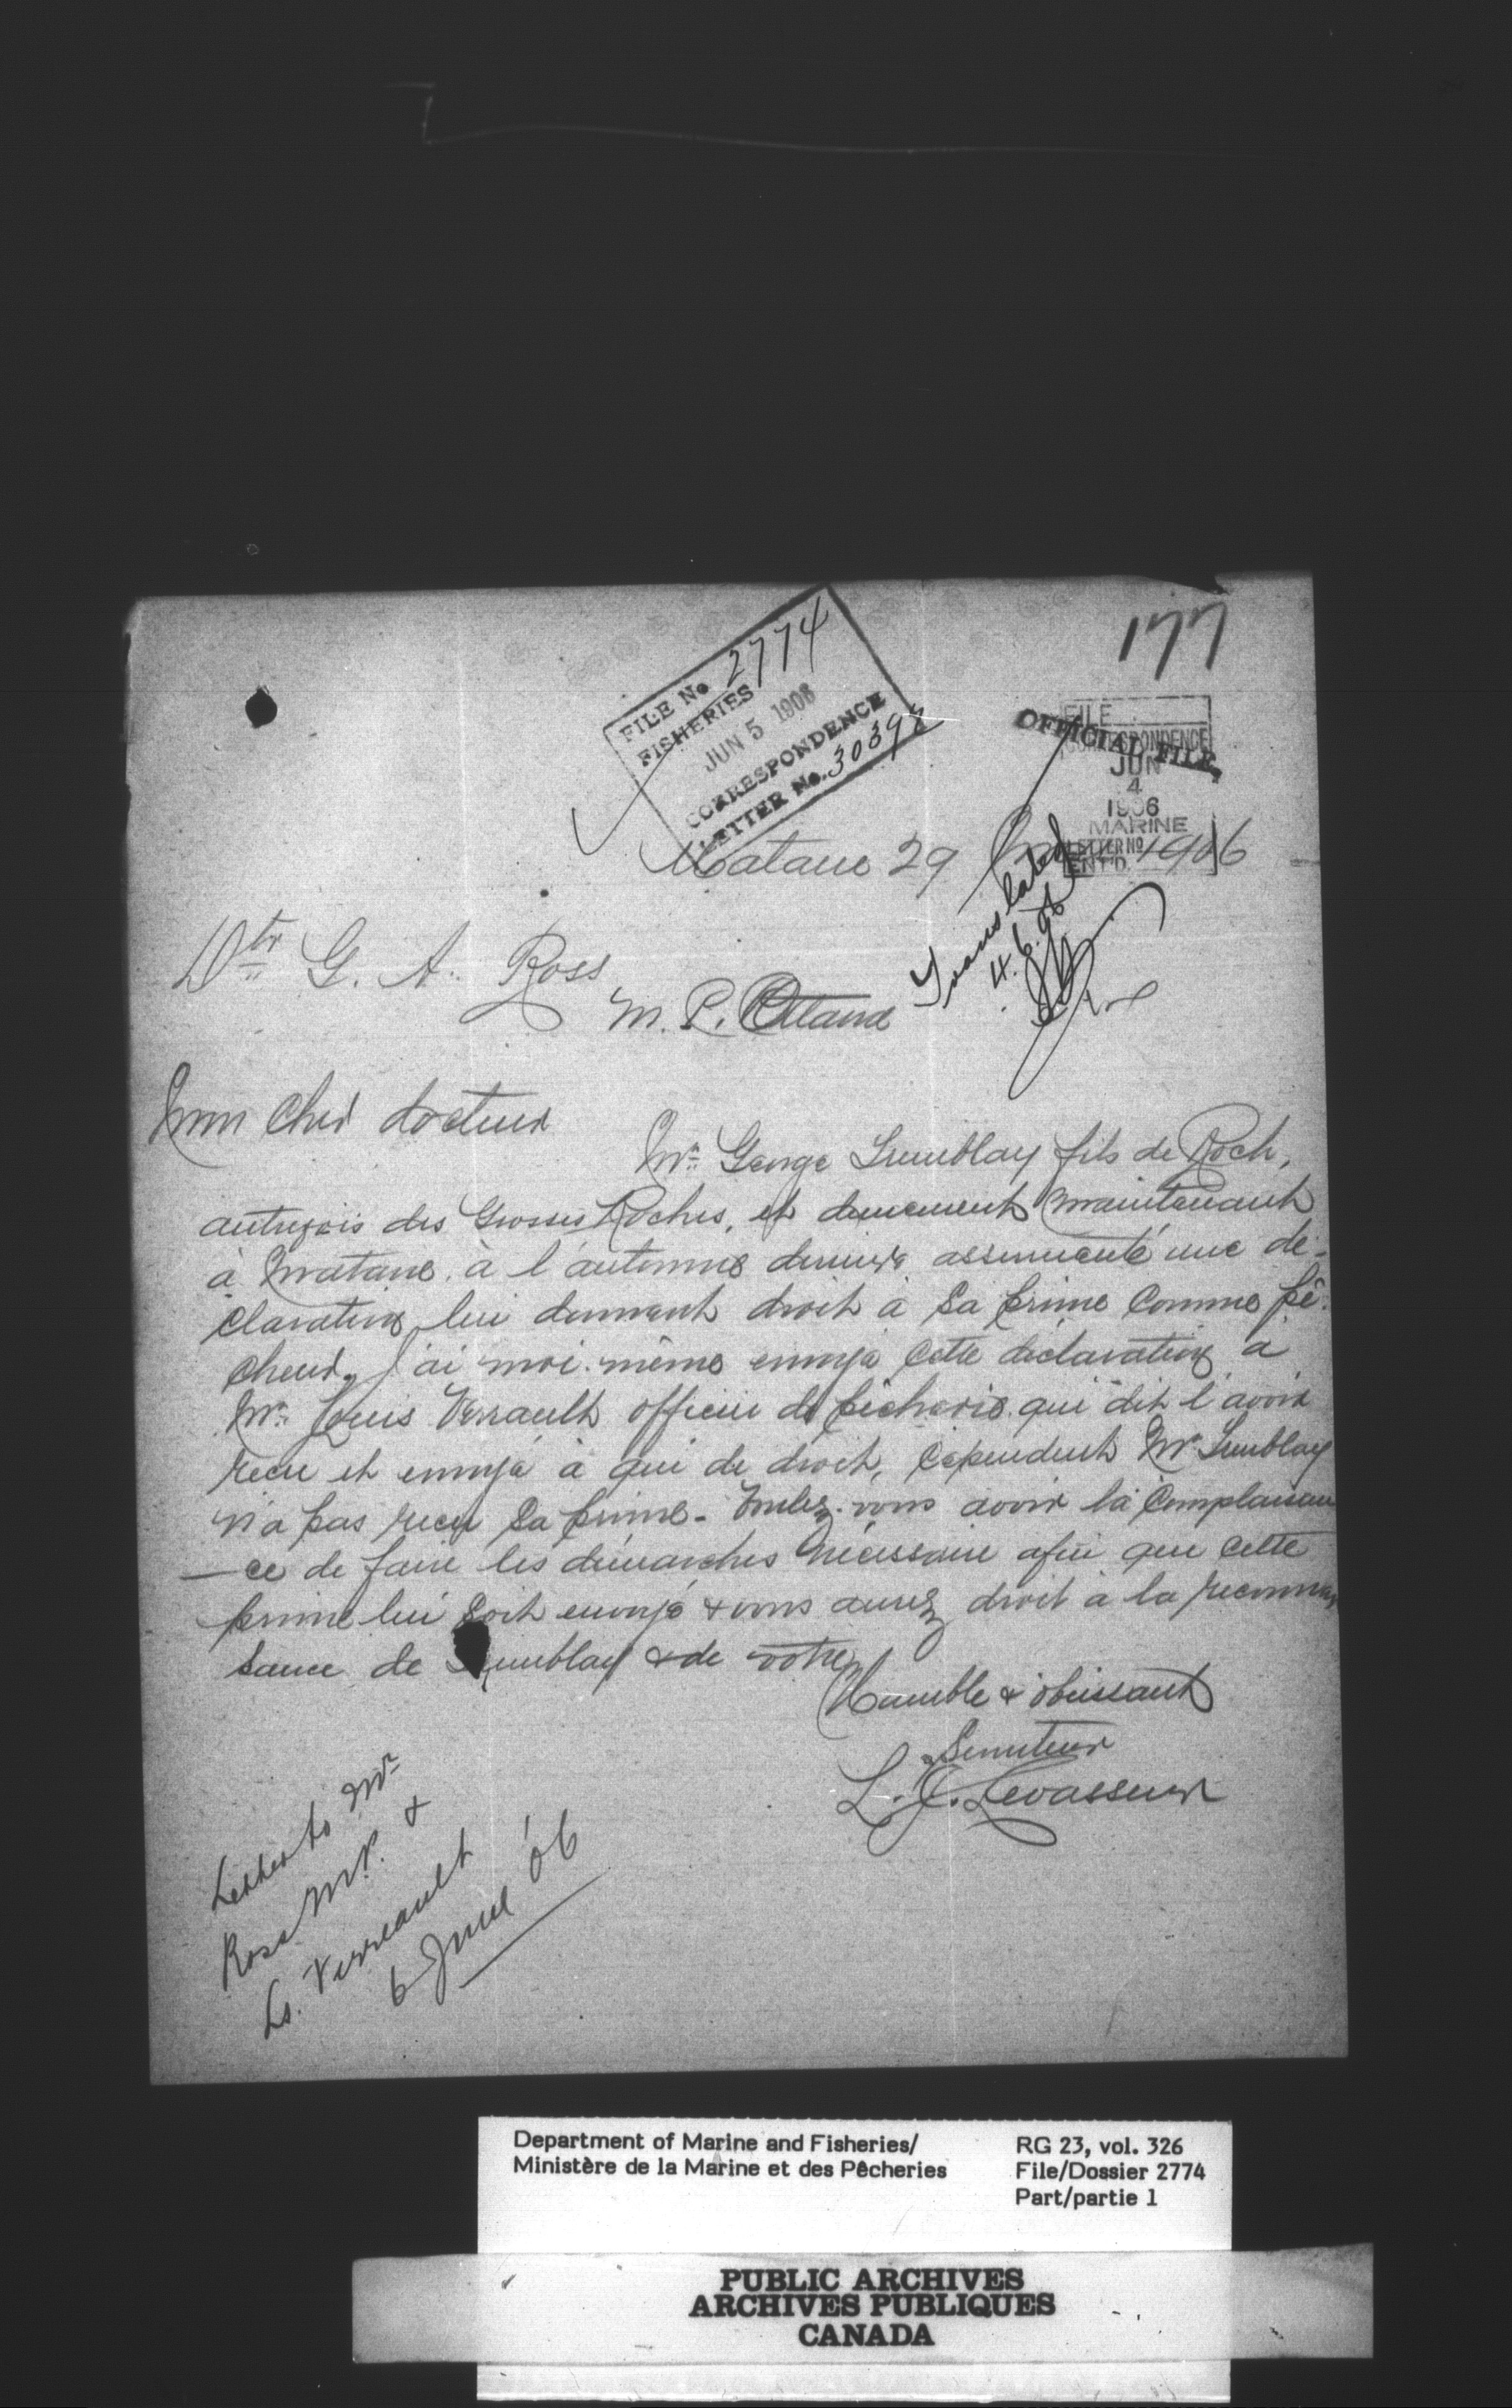 177
FILE No 2774
FISHERIES
JUN 5 1906
CORRESPONDENCE
LETTER No. 30398
OFFICIAL FILE
FILE
CORRESPONDENCE
JUN
4
1906
MARINE
LETTER No
ENT'D.
Matane 29 1906
Translated
4.6.06
Dtr G. A. Ross
M. P. Ottawa
Mon Cher docteur
Mr. George Tremblay fils de Roch,
autrefois des Grosses Roches, et demeurant maintenant
à Matane, à l'automne dernier assermenté une dé-
claration lui donnant droit à sa prime comme pê-
cheur, J'ai moi-même envoyé cette déclaration à
Mr. Louis Verrault officier de pêcherie qui dit l'avoir
recu et envoyé à qui de droit, cependant Mr Tremblay
n'a pas recu sa prime - Voulez-vous avoir la Complaisan
-ce de faire les démarches nécessaire afin que cette
prime lui soit envoyé & vous aurez droit à la reconnais
sance de Tremblay & de votre
Humble & obéissant
Serviteur
L. J. Levasseur
Letter to Mr
Ross M.P. &
Ls. Verreault
6 June '06
Department of Marine and Fisheries/
Ministère de la Marine et des Pêcheries
RG 23, vol. 326
File/Dossier 2774
Part/partie 1
PUBLIC ARCHIVES
ARCHIVES PUBLIQUES
CANADA